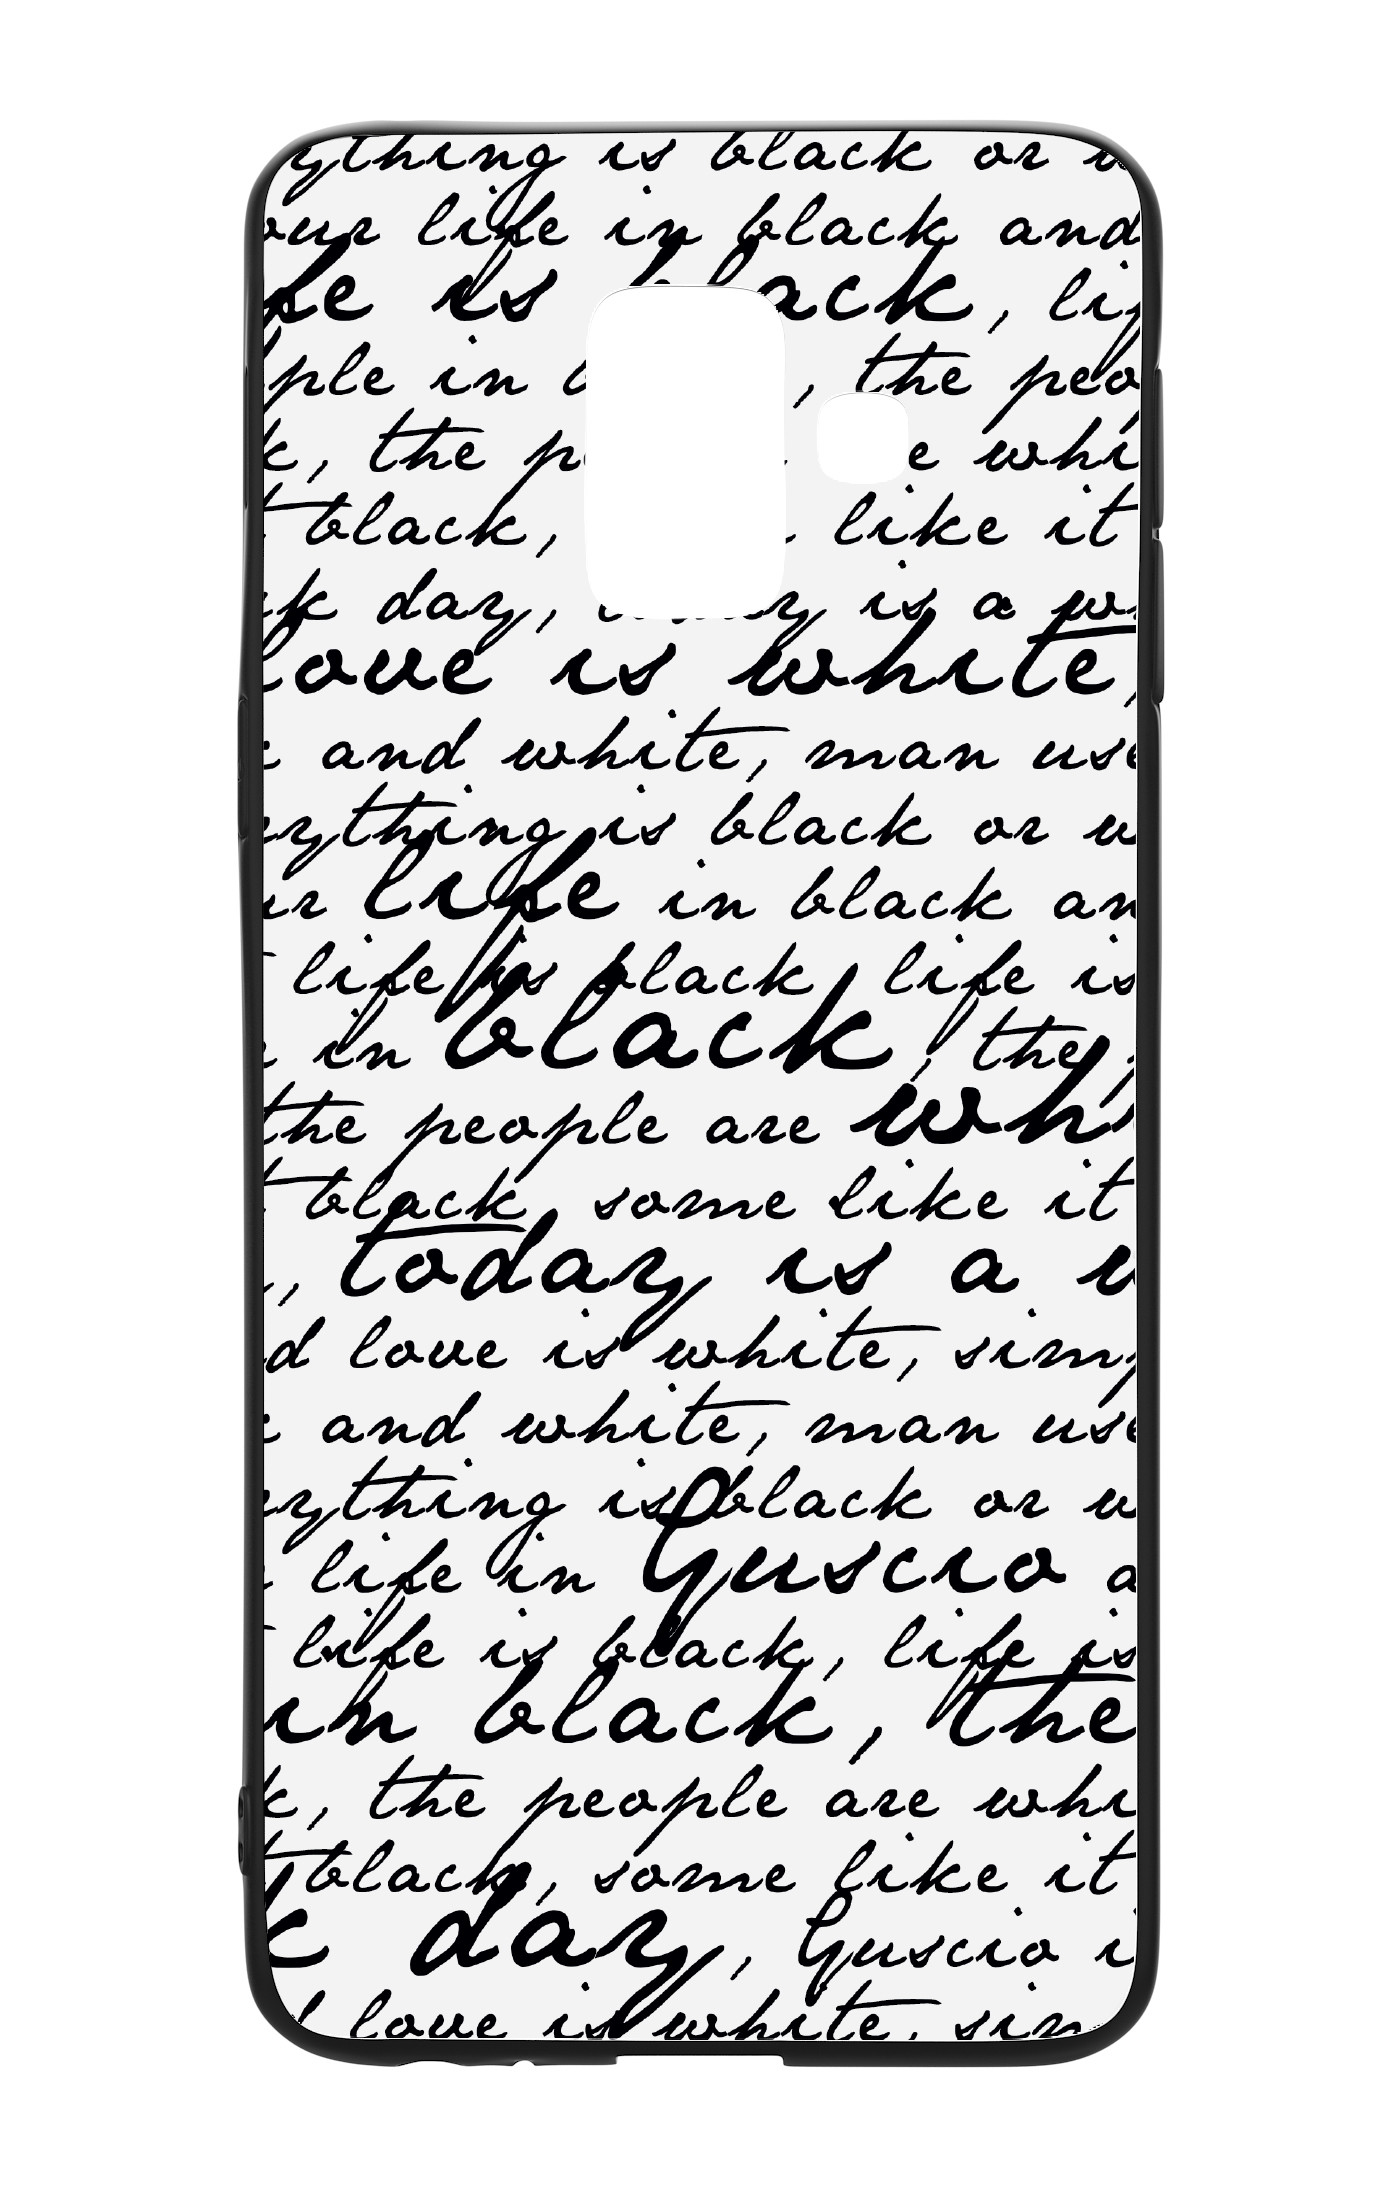 ything is black or w
our life in black and
fe is black, lif
ple in b , the peo
k, the p e whi
t black, like it
ck day, today is a wh
love is white,
e and white, man use
erything is black or w
ur life in black an
t life is black, life is
e in black, the p
the people are whi
t black, some like it
, today is a w
d love is white, simp
e and white, man use
erything is black or w
r life in Guscio a
t life is black, life is
in black, the
k, the people are whi
t black, some like it
k day, Guscio i
d love is white, sim